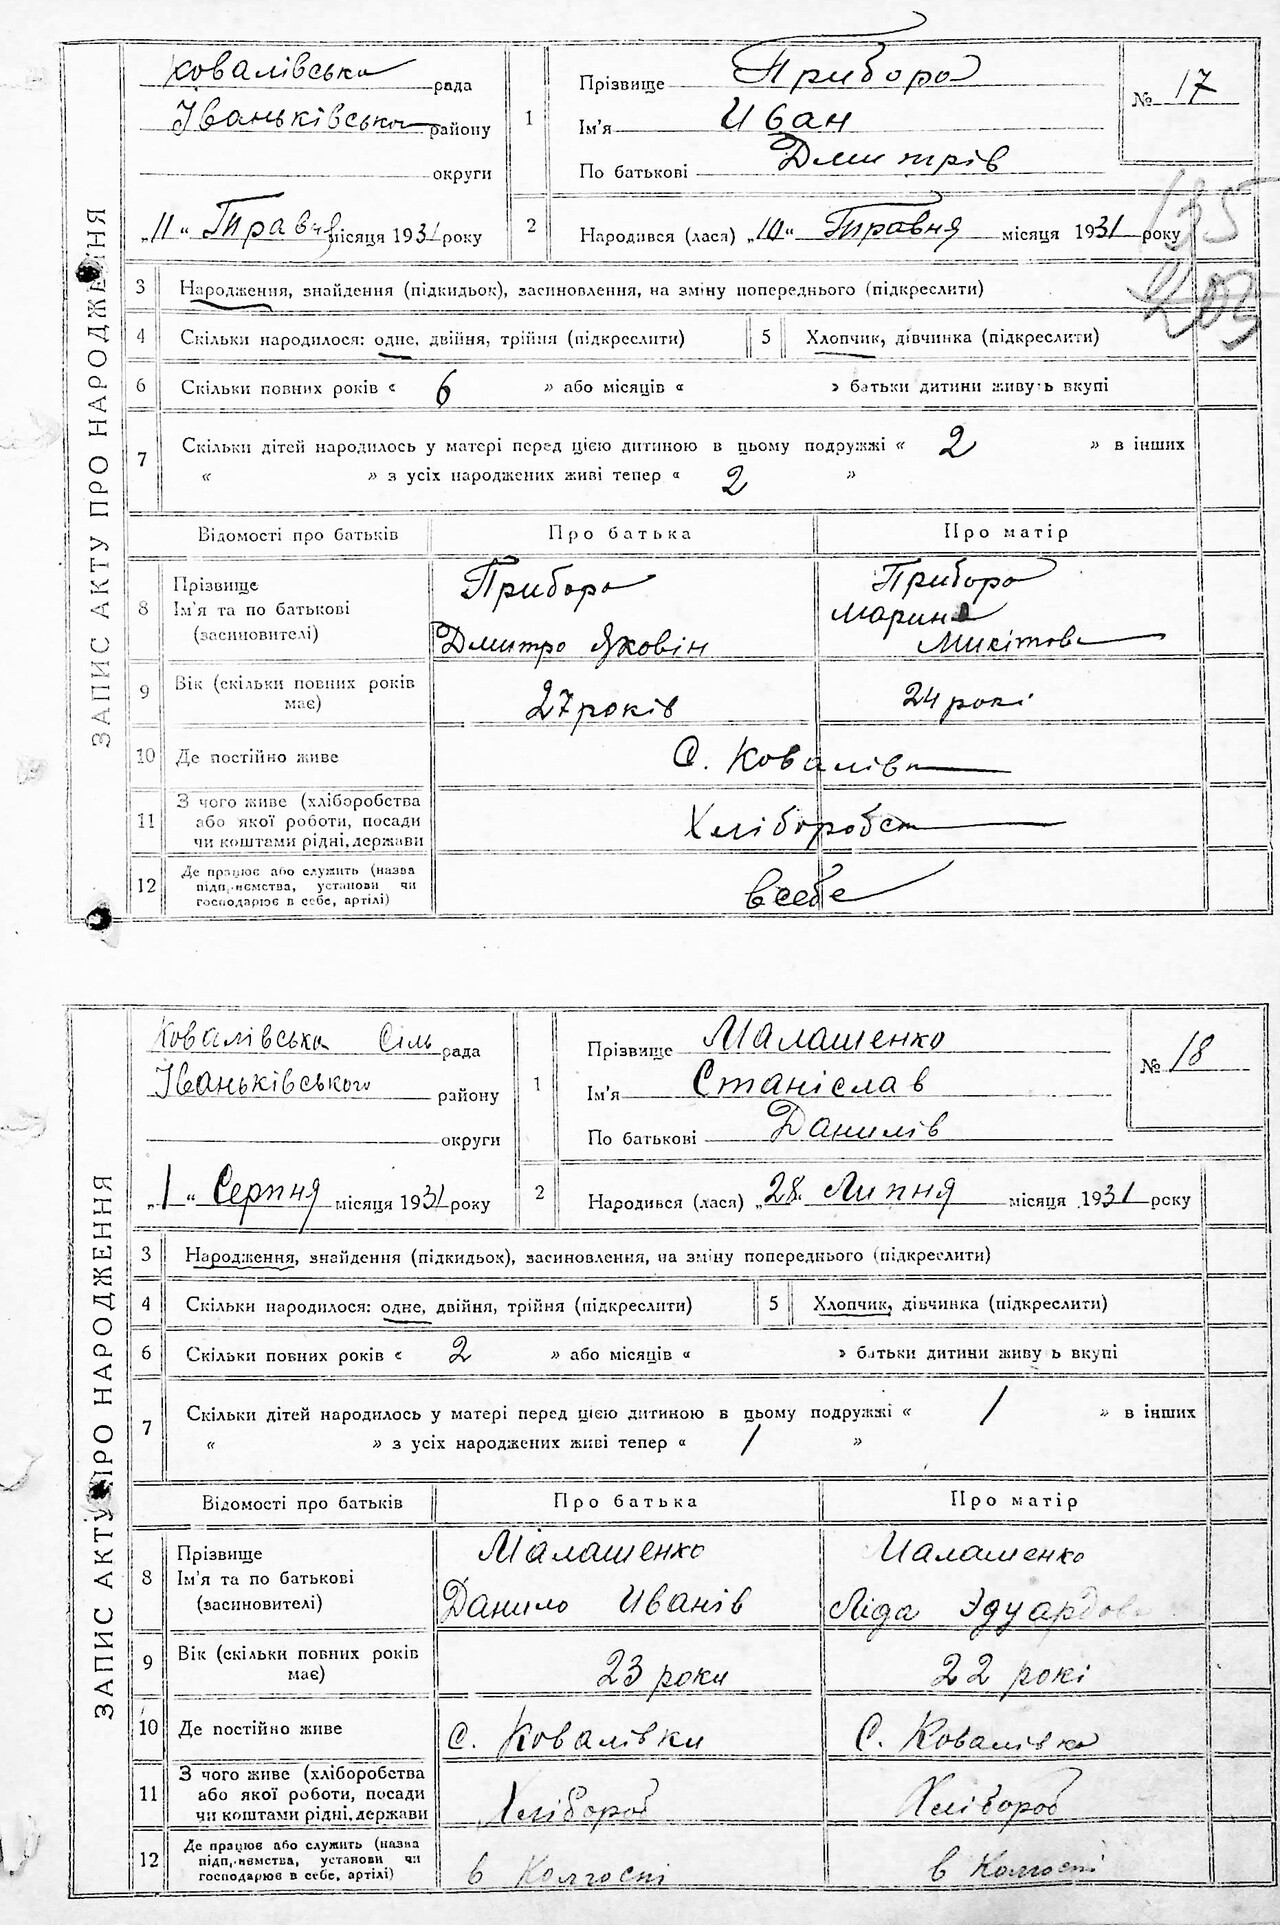 ЗАПИС АКТУ ПРО НАРОДЖЕННЯ
Ковалівська рада
Іваньківська району
округи
„11“ Травня місяця 1931 року
1
Прізвище Приборо
Ім'я Иван
По батькові Дмитрів
№ 17
2
Народився (лася) „10“ Травня місяця 1931 року
135
209
3 Народження, знайдення (підкидьок), засиновлення, на зміну попереднього (підкреслити)
4 Скільки народилося: одне, двійня, трійня (підкреслити) 5 Хлопчик, дівчинка (підкреслити)
6 Скільки повних років « 6 » або місяців « » батьки дитини живуть вкупі
7 Скільки дітей народилось у матері перед цією дитиною в цьому подружжі « 2 » в інших
« » з усіх народжених живі тепер « 2 »
Відомості про батьків Про батька Про матір
8 Прізвище
Ім'я та по батькові
(засиновителі)
Приборо
Дмитро Яковін
Приборо
Марина
Микітова
9 Вік (скільки повних років має) 27 років 24 рокі
10 Де постійно живе С. Ковалівк
11 З чого живе (хліборобства
або якої роботи, посади
чи коштами рідні, держави
Хліборобст
12 Де працює або служить (назва
підприємства, установи чи
господарює в себе, артілі)
всебе
ЗАПИС АКТУ ПРО НАРОДЖЕННЯ
Ковалівська Сіль рада
Іваньківського району
округи
„1“ Серпня місяця 1931 року
1
Прізвище Малашенко
Ім'я Станіслав
По батькові Данилів
№ 18
2
Народився (лася) „28. Липня місяця 1931 року
3 Народження, знайдення (підкидьок), засиновлення, на зміну попереднього (підкреслити)
4 Скільки народилося: одне, двійня, трійня (підкреслити) 5 Хлопчик, дівчинка (підкреслити)
6 Скільки повних років « 2 » або місяців « » батьки дитини живуть вкупі
7 Скільки дітей народилось у матері перед цією дитиною в цьому подружжі « 1 » в інших
« » з усіх народжених живі тепер « 1 »
Відомості про батьків Про батька Про матір
8 Прізвище
Ім'я та по батькові
(засиновителі)
Малашенко
Данило Иванів
Малашенко
Ліда Эдуардова
9 Вік (скільки повних років має) 23 роки 22 рокі
10 Де постійно живе С. Ковалівки С. Ковалівка
11 З чого живе (хліборобства
або якої роботи, посади
чи коштами рідні, держави
Хлібороб Хлібороб
12 Де працює або служить (назва
підприємства, установи чи
господарює в себе, артілі)
в Колгоспі в Колгоспі